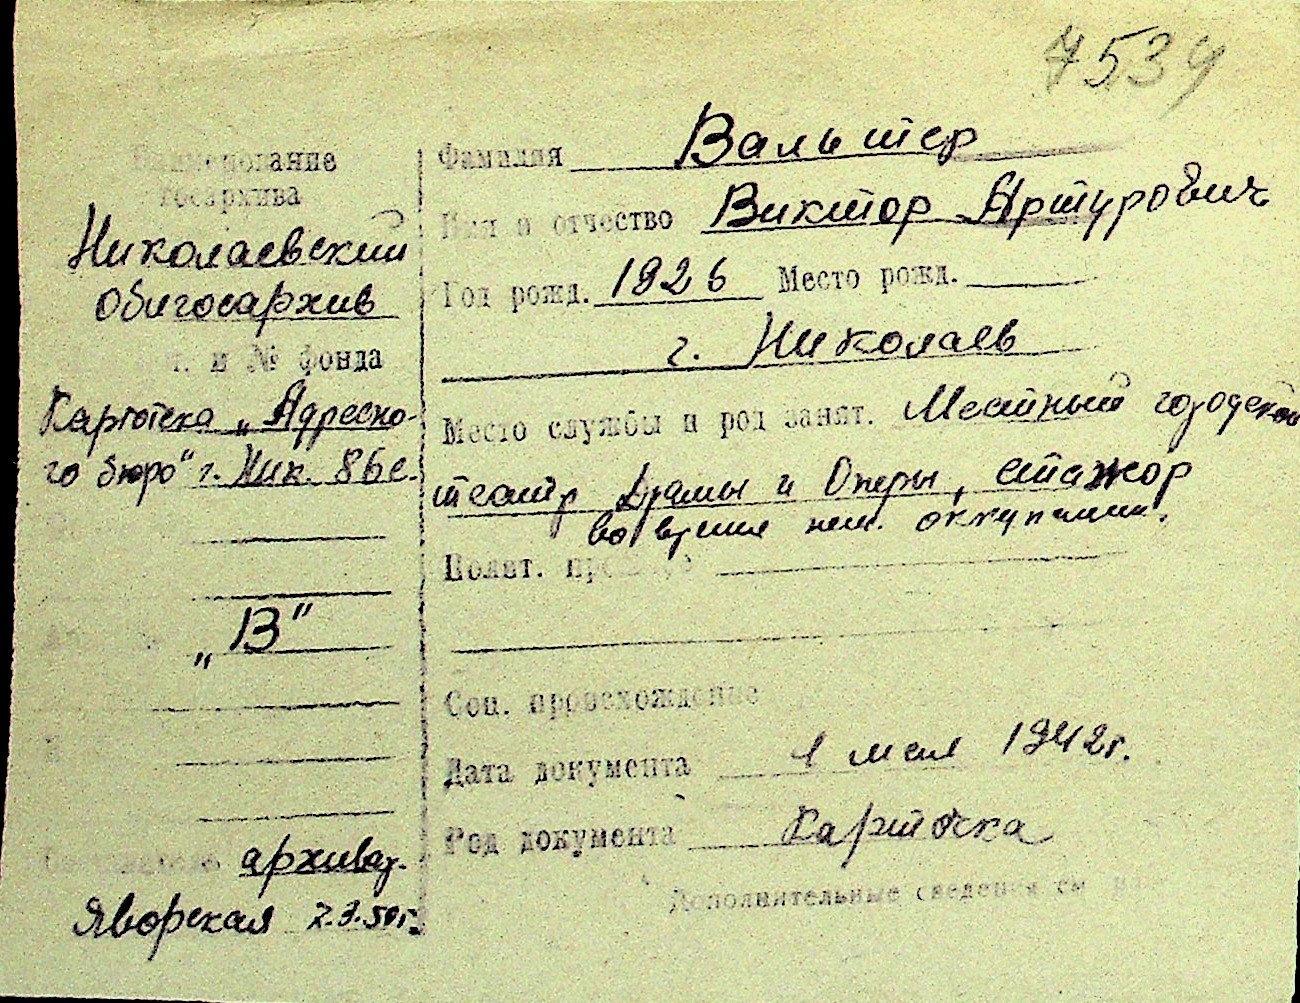 7539
Наименование
госархива
Николаевский
Облгосархив
№ фонда
Картотека „Адресно-
го бюро" г. Ник. 86 с.
„В"
архивар.
Яворская 2.3.50г.
Фамилия Вальтер
Имя и отчество Виктор Артурович
Год рожд. 1926 Место рожд.
г. Николаев
Место службы и род занят. Местный городской
театр Драмы и Оперы, стажор
во время нем. оккупации.
Полит.
Соц. происхождение
Дата документа 1 мая 1942г.
Род документа Карточка
Дополнительные сведения см